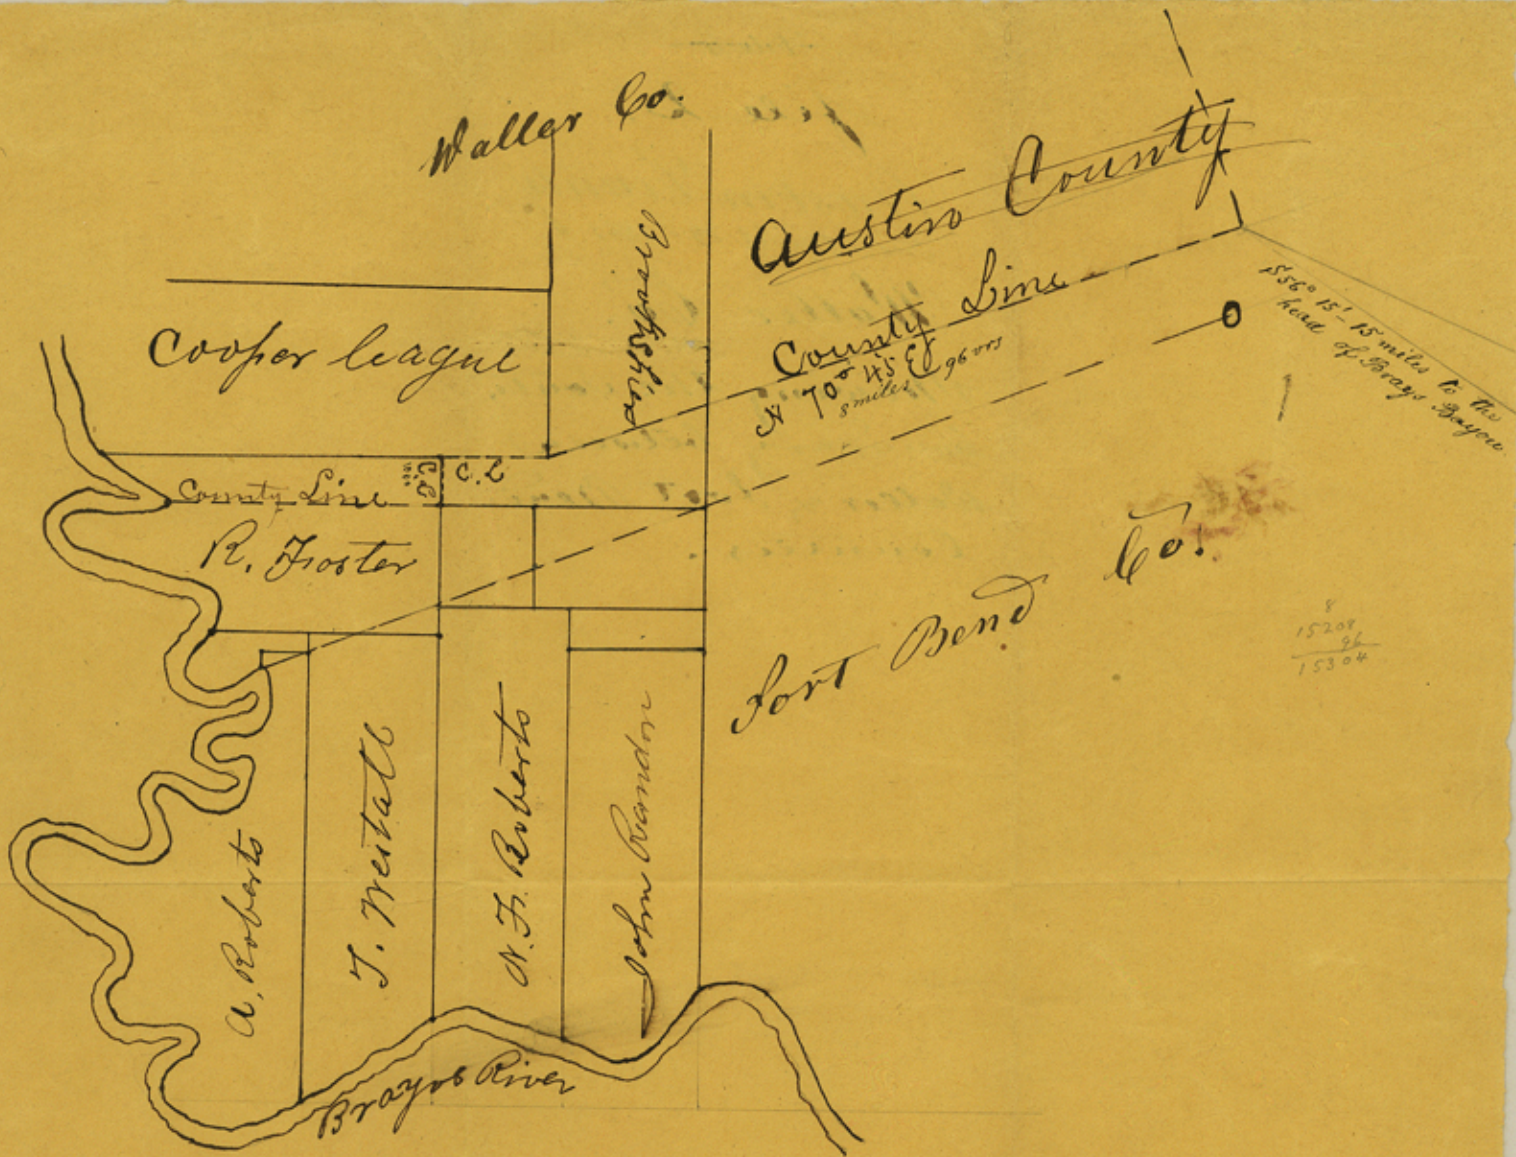 Waller Co.
Austin County
Brookshire
Cooper league
County Line
70° 45 E
8 miles & 96 vrs
S 56° 15' - 15 miles to the
head of Brays Bayou
C. L
C. L
County Line
R. Foster
Fort Bend Co.
8
15208
96
15304
A. Roberts
T. Westall
N. F. Roberts
John Randon
Brayos River